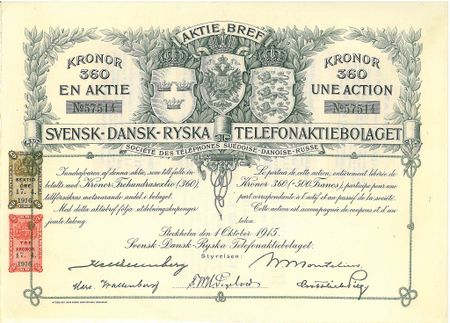 AKTIE BREF
KRONOR
360
EN AKTIE
No 57514
KRONOR
360
UNE ACTION
No 57514
SVENSK-DANSK-RYSKA TELEFONAKTIEBOLAGET
SOCIÉTÉ DES TÉLÉPHONES SUÉDOISE-DANOISE-RUSSE
Innehafvaren af denna aktie, som till fullo in-
betalts med Kronor Trehundrasextio (360),
tillförsäkras motsvarande andel i bolaget.
Med detta aktiebref följa utdelningskuponger
jemte talong.
Le porteur de cette action, entièrement libérée de
Kronor 360 (=500 Francs), participe pour une
part correspondante à l'actif et au passif de la société.
Cette action est accompagnée de coupons et d'un
talon.
SEXTIO
ÖRE
17. 4.
1916
TRE
KRONOR
17. 4.
1916
Stockholm den 1 Oktober 1915.
Svensk-Dansk-Ryska Telefonaktiebolaget.
Styrelsen: